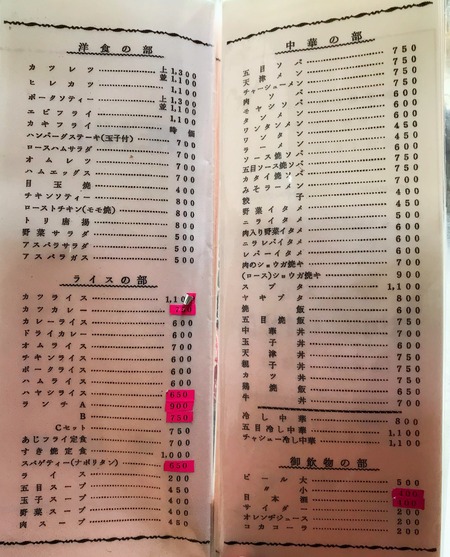 洋食の部
カツレツ 上1,300 並1,100
ヒレカツ 1,100
ポークソティー 上1,300 並1,100
エビフライ 1,100
カキフライ 時価
ハンバーグステーキ(玉子付) 700
ロースハムサラダ 700
オムレツ 700
ハムエッグス 700
目玉焼 400
チキンソティー 800
ローストチキン(モモ焼) 800
トリ唐揚 800
野菜サラダ 500
アスパラサラダ 500
アスパラガス 500
ライスの部
カツライス 1,100
カツカレー
カレーライス 600
ドライカレー 600
オムライス 700
チキンライス 600
ポークライス 600
ハムライス 600
ハヤシライス 650
ランチA 900
B 750
Cセット 750
あじフライ定食 700
すき焼定食 1,000
スパゲティー(ナポリタン) 650
ライス 200
五目スープ 450
玉子スープ 400
野菜スープ 400
肉スープ 450
中華の部
五目ソバ 750
天津メン 750
チャーシューメン 750
肉ソバ 750
モヤシソバ 600
タンメン 600
ワンタンメン 600
ワンタン 450
ラーメン 450
ソース焼ソバ 600
五目ソース焼ソバ 750
カタイ焼ソバ 750
みそラーメン 700
餃子 400
野菜イタメ 450
ニライタメ 450
肉入り野菜イタメ 600
ニラレバイタメ 600
レバーイタメ 600
肉のショウガ焼キ 700
(ロース)ショウガ焼キ 900
スブタ 1,100
ヤキブタ 800
焼飯 600
五目焼飯 750
中華丼 700
玉子丼 600
天津丼 750
親子丼 750
カツ丼 750
鶏焼飯 650
牛丼 700
冷し中華 800
五目冷し中華 1,100
チャシュー冷し中華 1,100
御飲物の部
ビール大 500
〃小 400
日本酒 400
サイダー 200
オレンヂジュース 200
コカコーラ 200